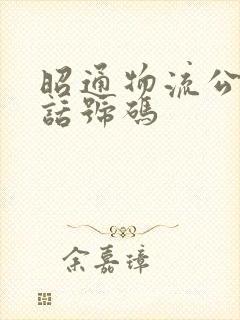 昭通物流公
話號碼
余嘉璋